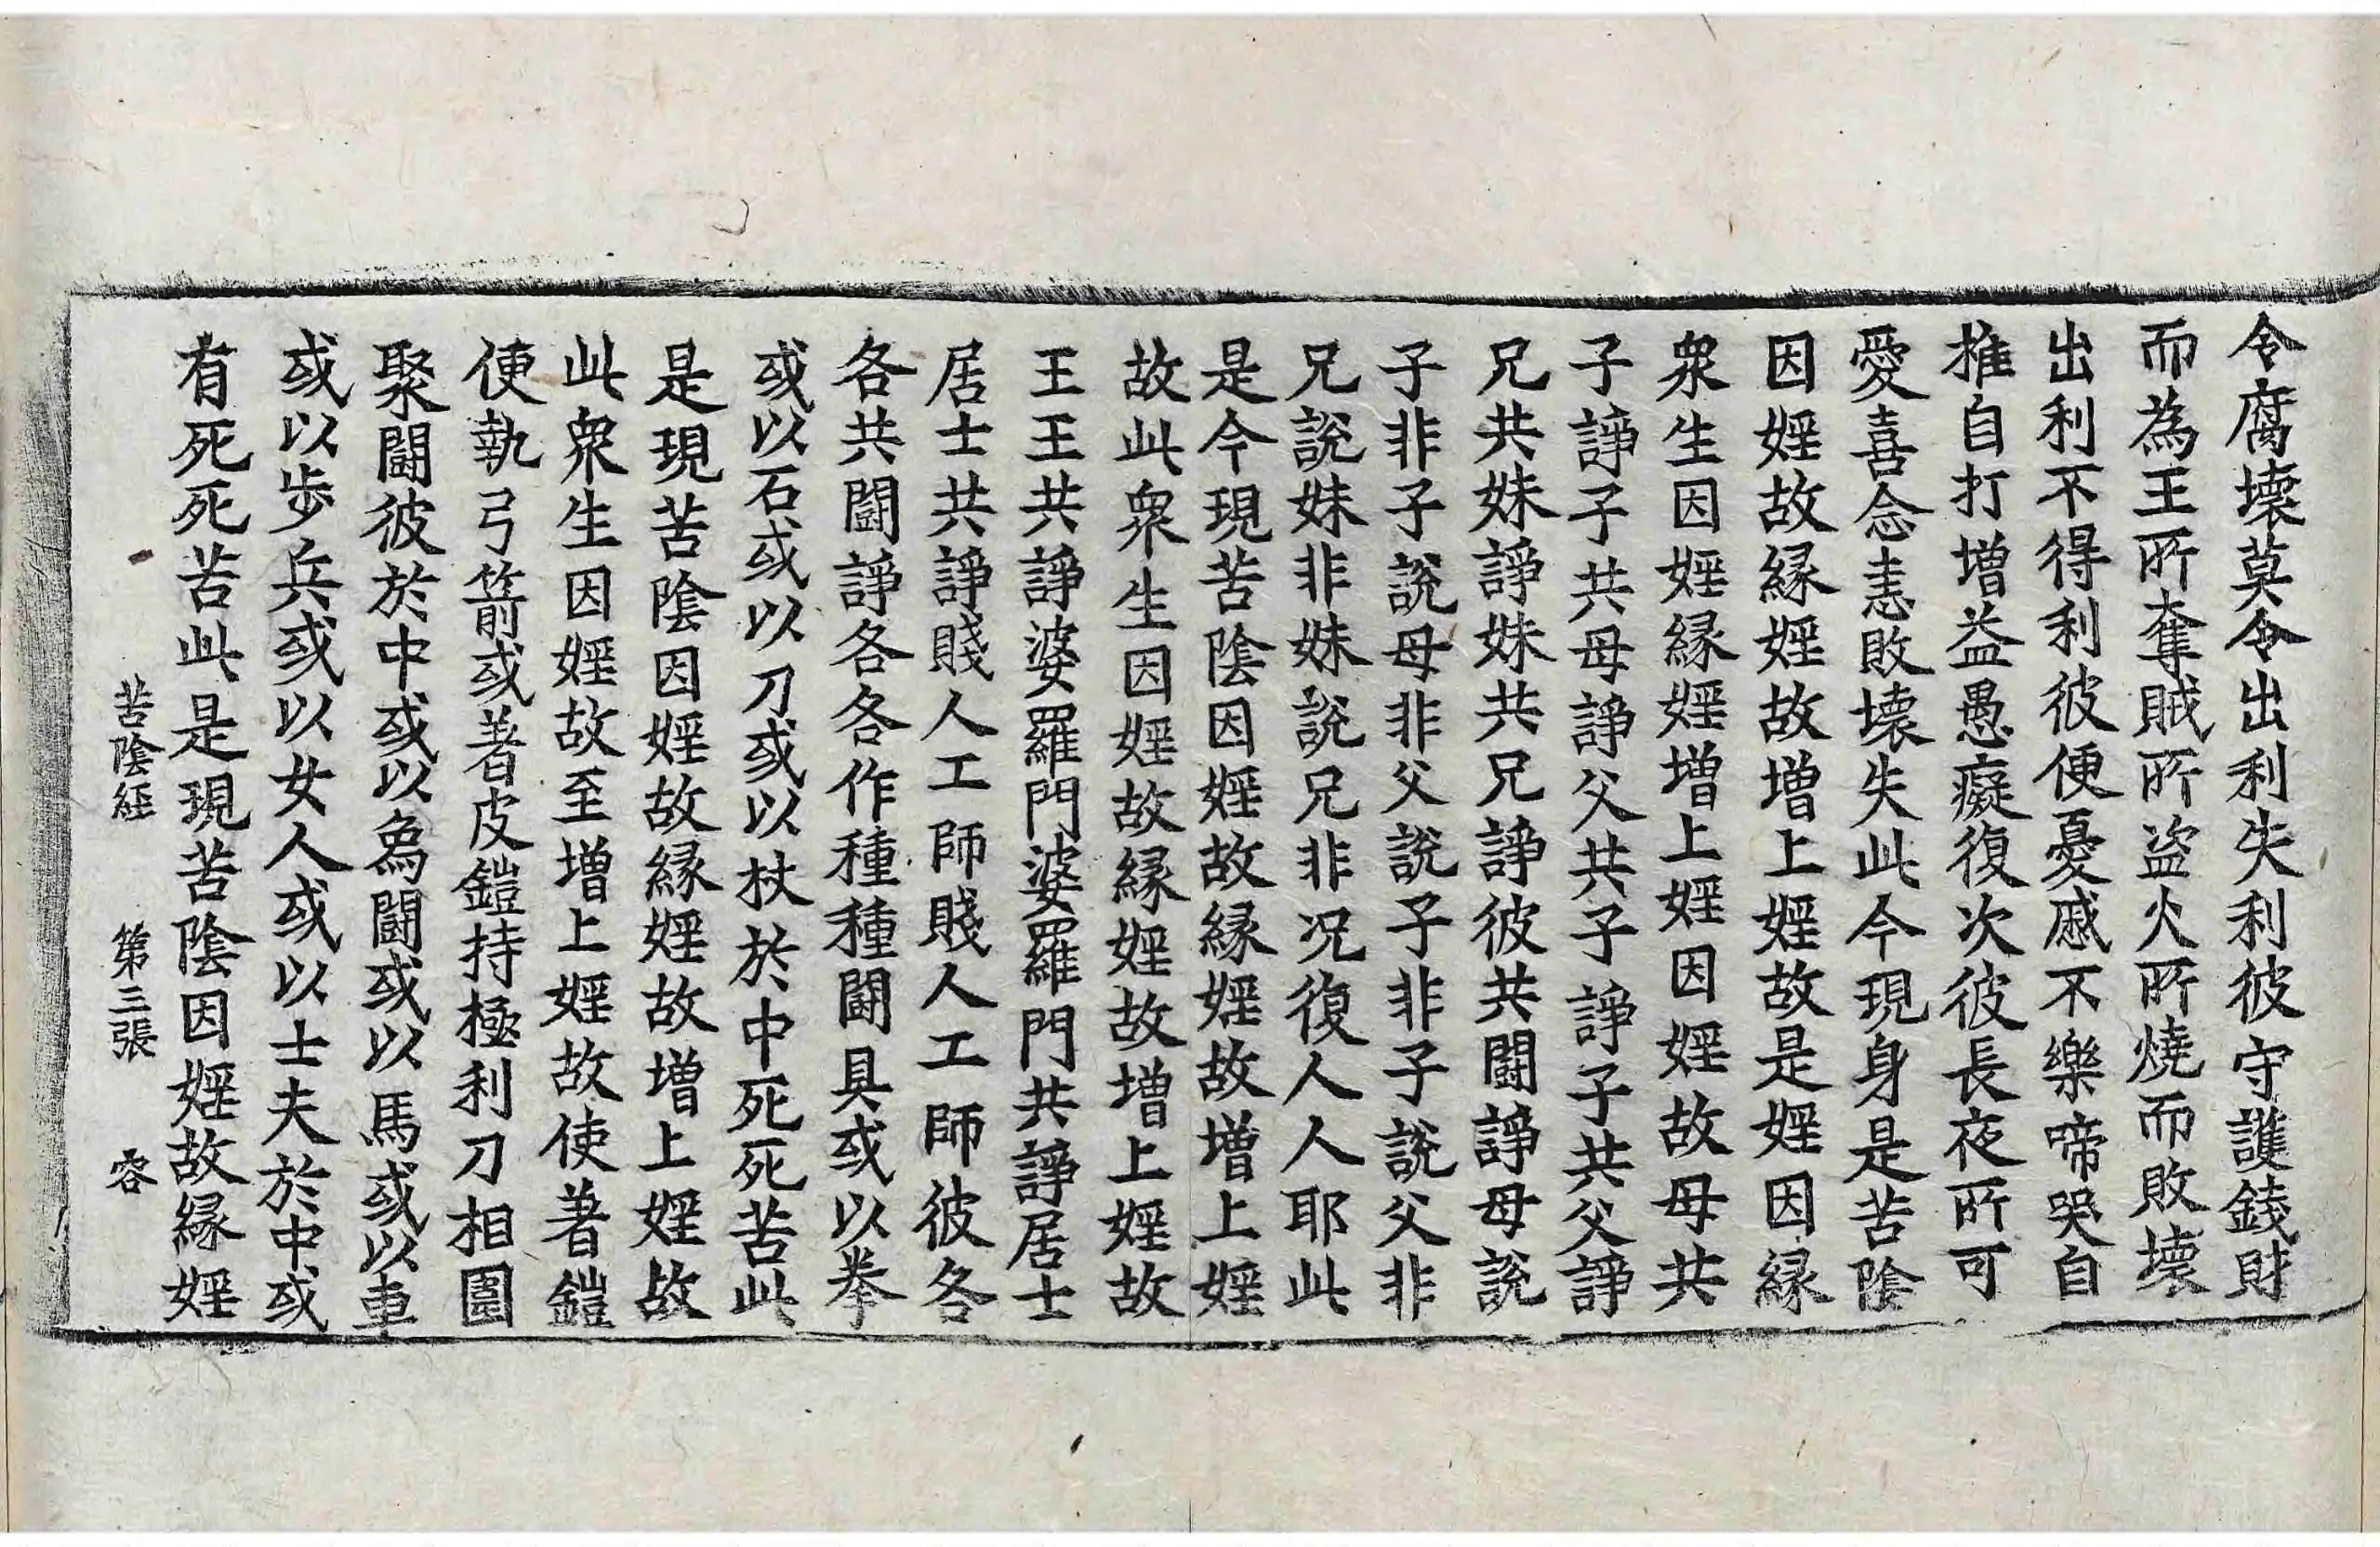 令腐壞莫令出利失利彼守護錢財
而為王所奪賊所盜火所燒而敗壞
出利不得利彼便憂慼不樂啼哭自
推自打增益愚癡復次彼長夜所可
愛喜念恚敗壞失此今現身是苦陰
因婬故緣婬故增上婬故是婬因緣
衆生因婬緣婬增上婬因婬故母共
子諍子共母諍父共子諍子共父諍
兄共妹諍妹共兄諍彼共鬪諍母說
子非子說母非父說子非子說父非
兄說妹非妹說兄非況復人人耶此
是今現苦陰因婬故緣婬故增上婬
故此衆生因婬故緣婬故增上婬故
王王共諍婆羅門婆羅門共諍居士
居士共諍賤人工師賤人工師彼各
各共鬪諍各各作種種鬪具或以拳
或以石或以刀或以杖於中死死苦此
是現苦陰因婬故緣婬故增上婬故
此衆生因婬故至增上婬故使著鎧
便執弓箭或著皮鎧持極利刀相圍
聚鬪彼於中或以象鬪或以馬或以車
或以步兵或以女人或以士夫於中或
有死死苦此是現苦陰因婬故緣婬
苦陰經 第三張 容